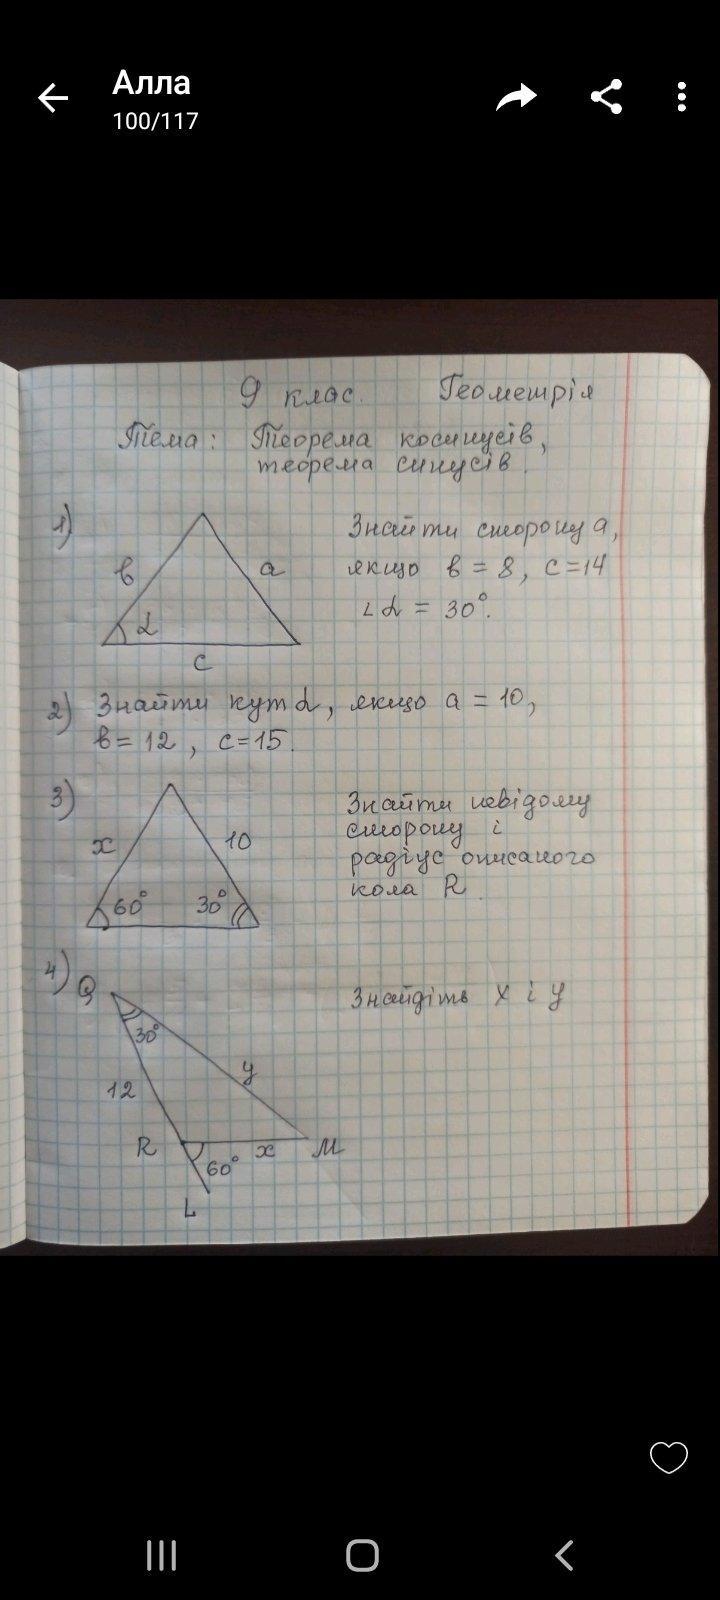 Алла
100/117
9 клас. Геометрія
Тема: Теорема косинусів,
теорема синусів.
1)
в
a
α
c
Знайти сторону a,
якщо в = 8, c=14
∠α = 30°.
2) Знайти кут α, якщо a = 10,
в = 12, c=15.
3)
x
10
60°
30°
Знайти невідому
сторону і
радіус описаного
кола R.
4)
Q
30°
12
y
R
x
M
60°
L
Знайдіть x і y